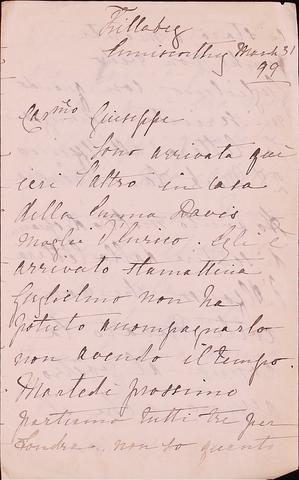 Killabeg
Enniscorthy March 31
99
Carmo Giuseppe
Sono arrivata qui
ieri l'altro in casa
della Emma Davis
moglie d'Enrico. Egli è
arrivato stamattina
Guglielmo non ha
potuto accompagnarlo
non avendo il tempo.
Martedi prossimo
partiamo tutti tre per
Londra, non so quanto